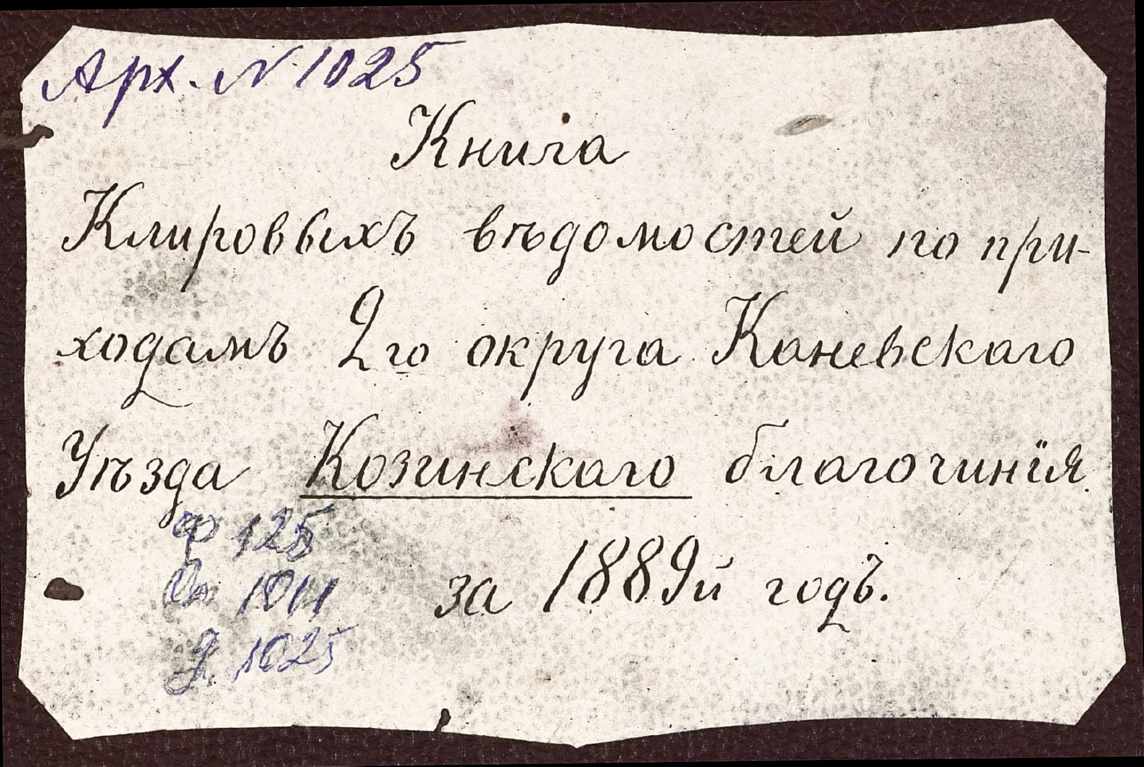 Арх. N 1025
Книга
Клировыхъ вѣдомостей по при-
ходамъ 2го округа Каневскаго
Уѣзда Козинскаго благочинія
Ф 125
за 1889й годъ.
д. 1025